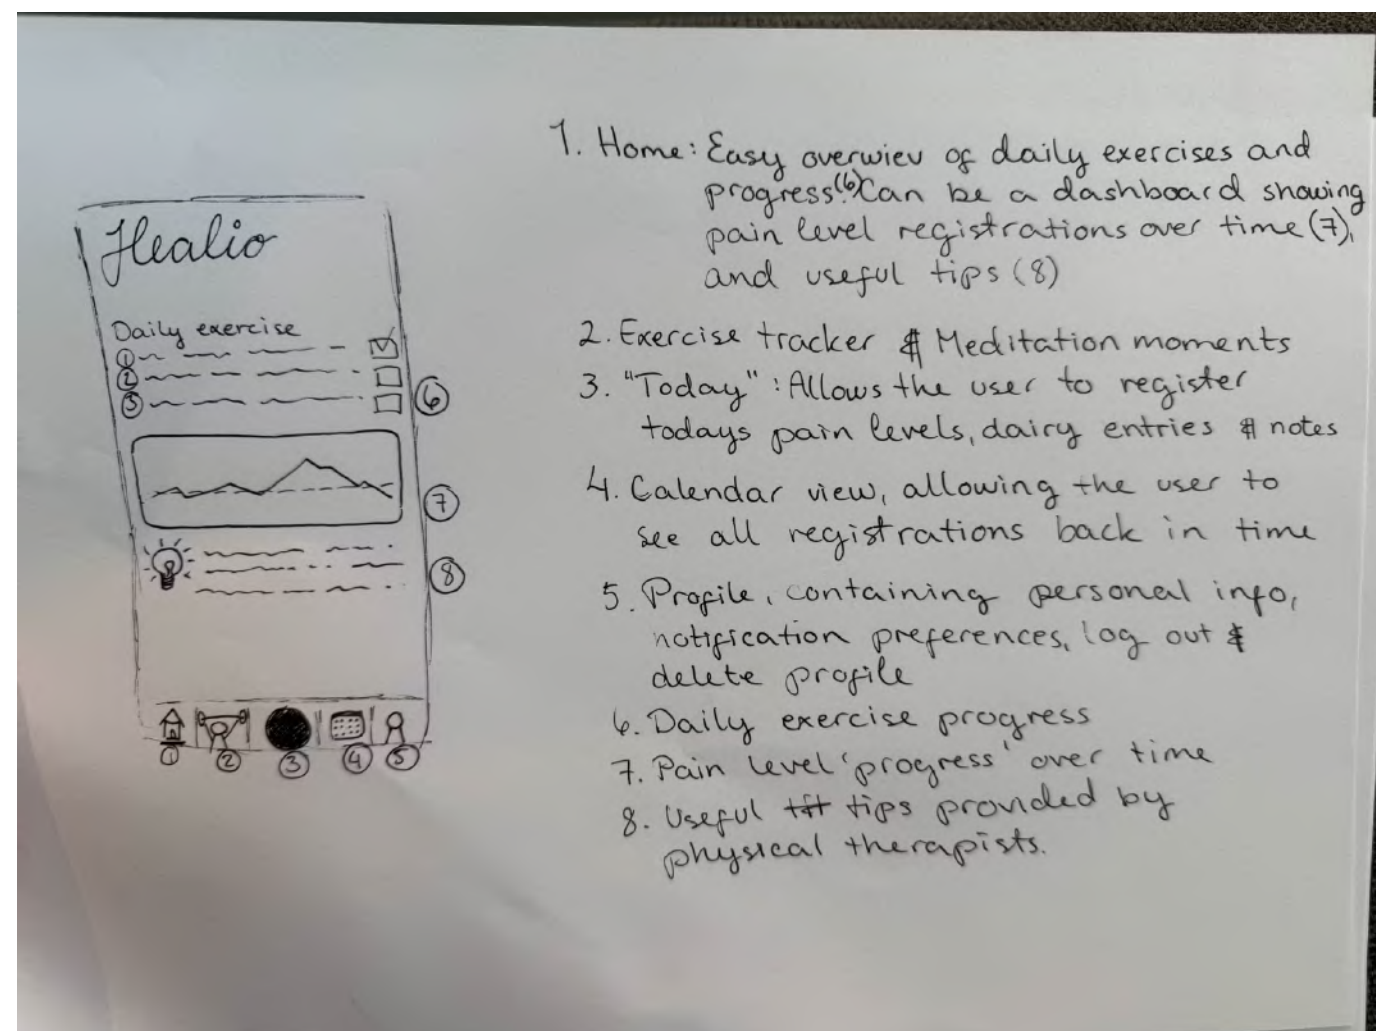 Healio
Daily exercise
1
2
3
6
7
8
1 2 3 4 5
1. Home: Easy overwiev of daily exercises and
progress.(6) Can be a dashboard showing
pain level registrations over time (7),
and useful tips (8)
2. Exercise tracker & Meditation moments
3. "Today": Allows the user to register
todays pain levels, dairy entries & notes
4. Calendar view, allowing the user to
see all registrations back in time
5. Profile, containing personal info,
notification preferences, log out &
delete profile
6. Daily exercise progress
7. Pain level 'progress' over time
8. Useful tips provided by
physical therapists.